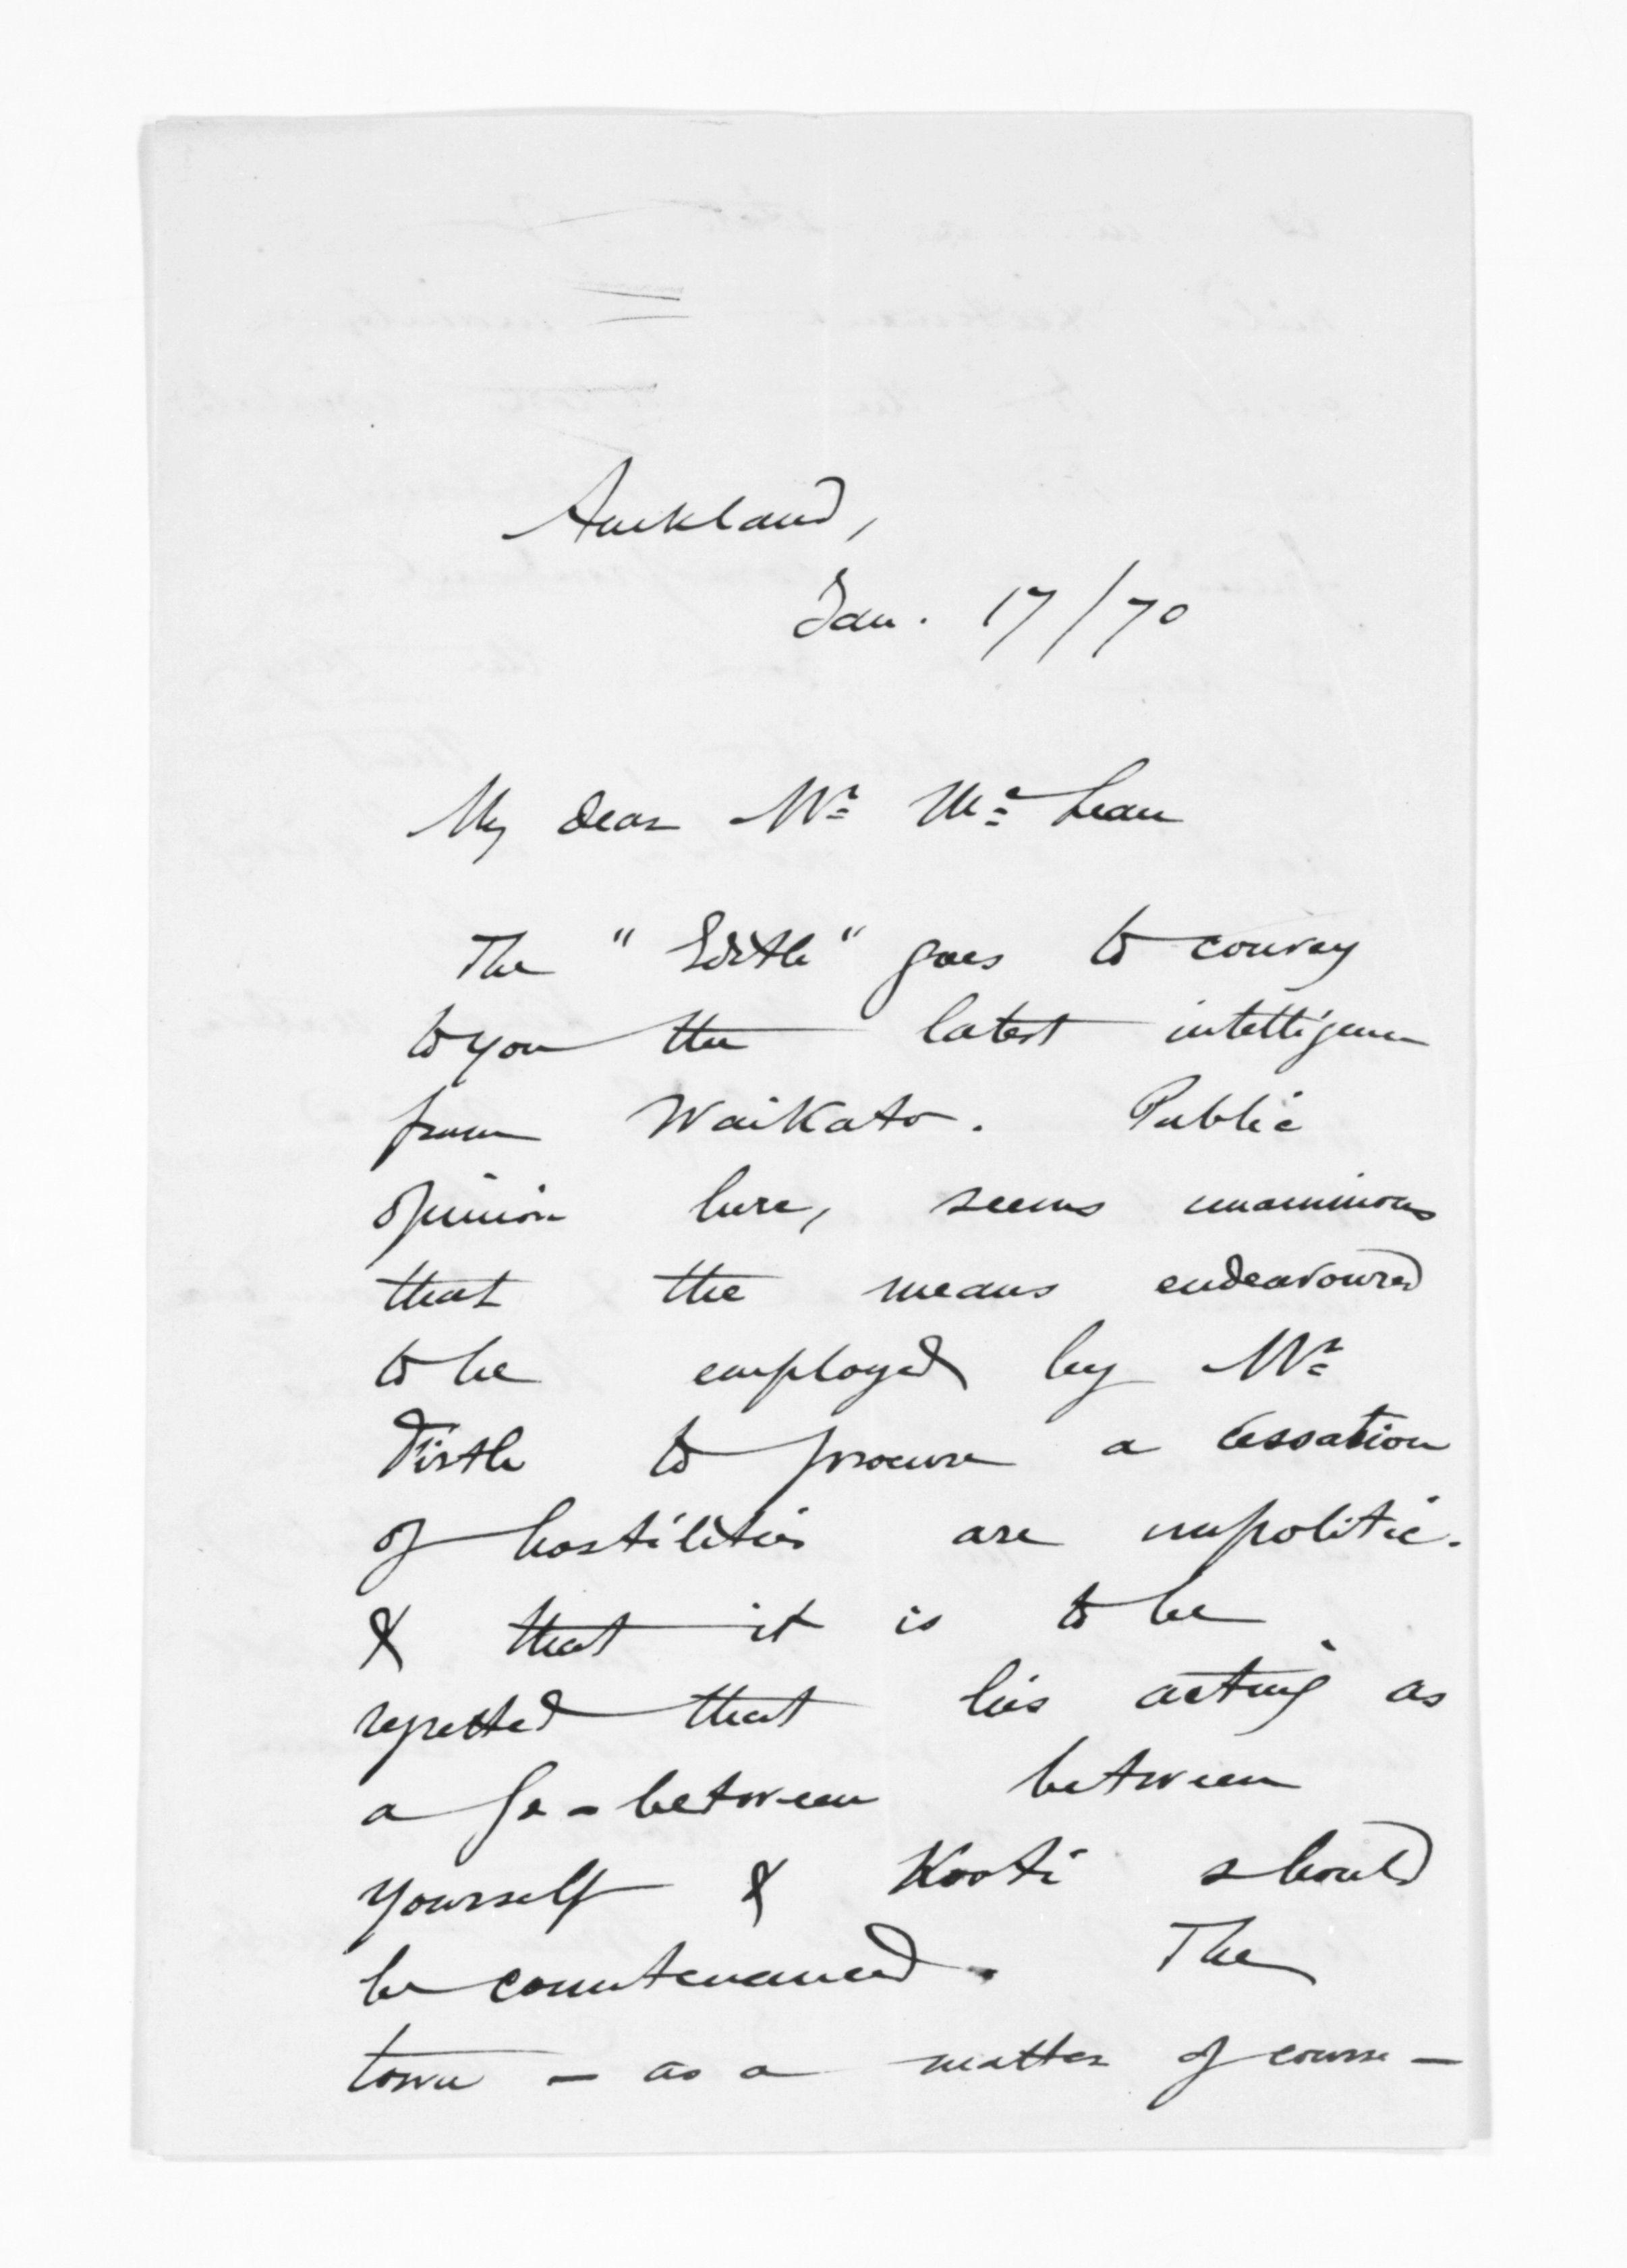 Auckland,
Jan. 17/70
My dear Mr. McLean
The "Edith" goes to convey
to you the latest intelligence
from Waikato. Public
opinion here, seems unanimous
that the means endeavoured
to be employed by Mr.
Firth to procure a cessation
of hostilities are impolitic.
& that it is to be
regretted that his acting as
a go-between between
yourself & Kooti should
be countenanced. The
town — as a matter of course —